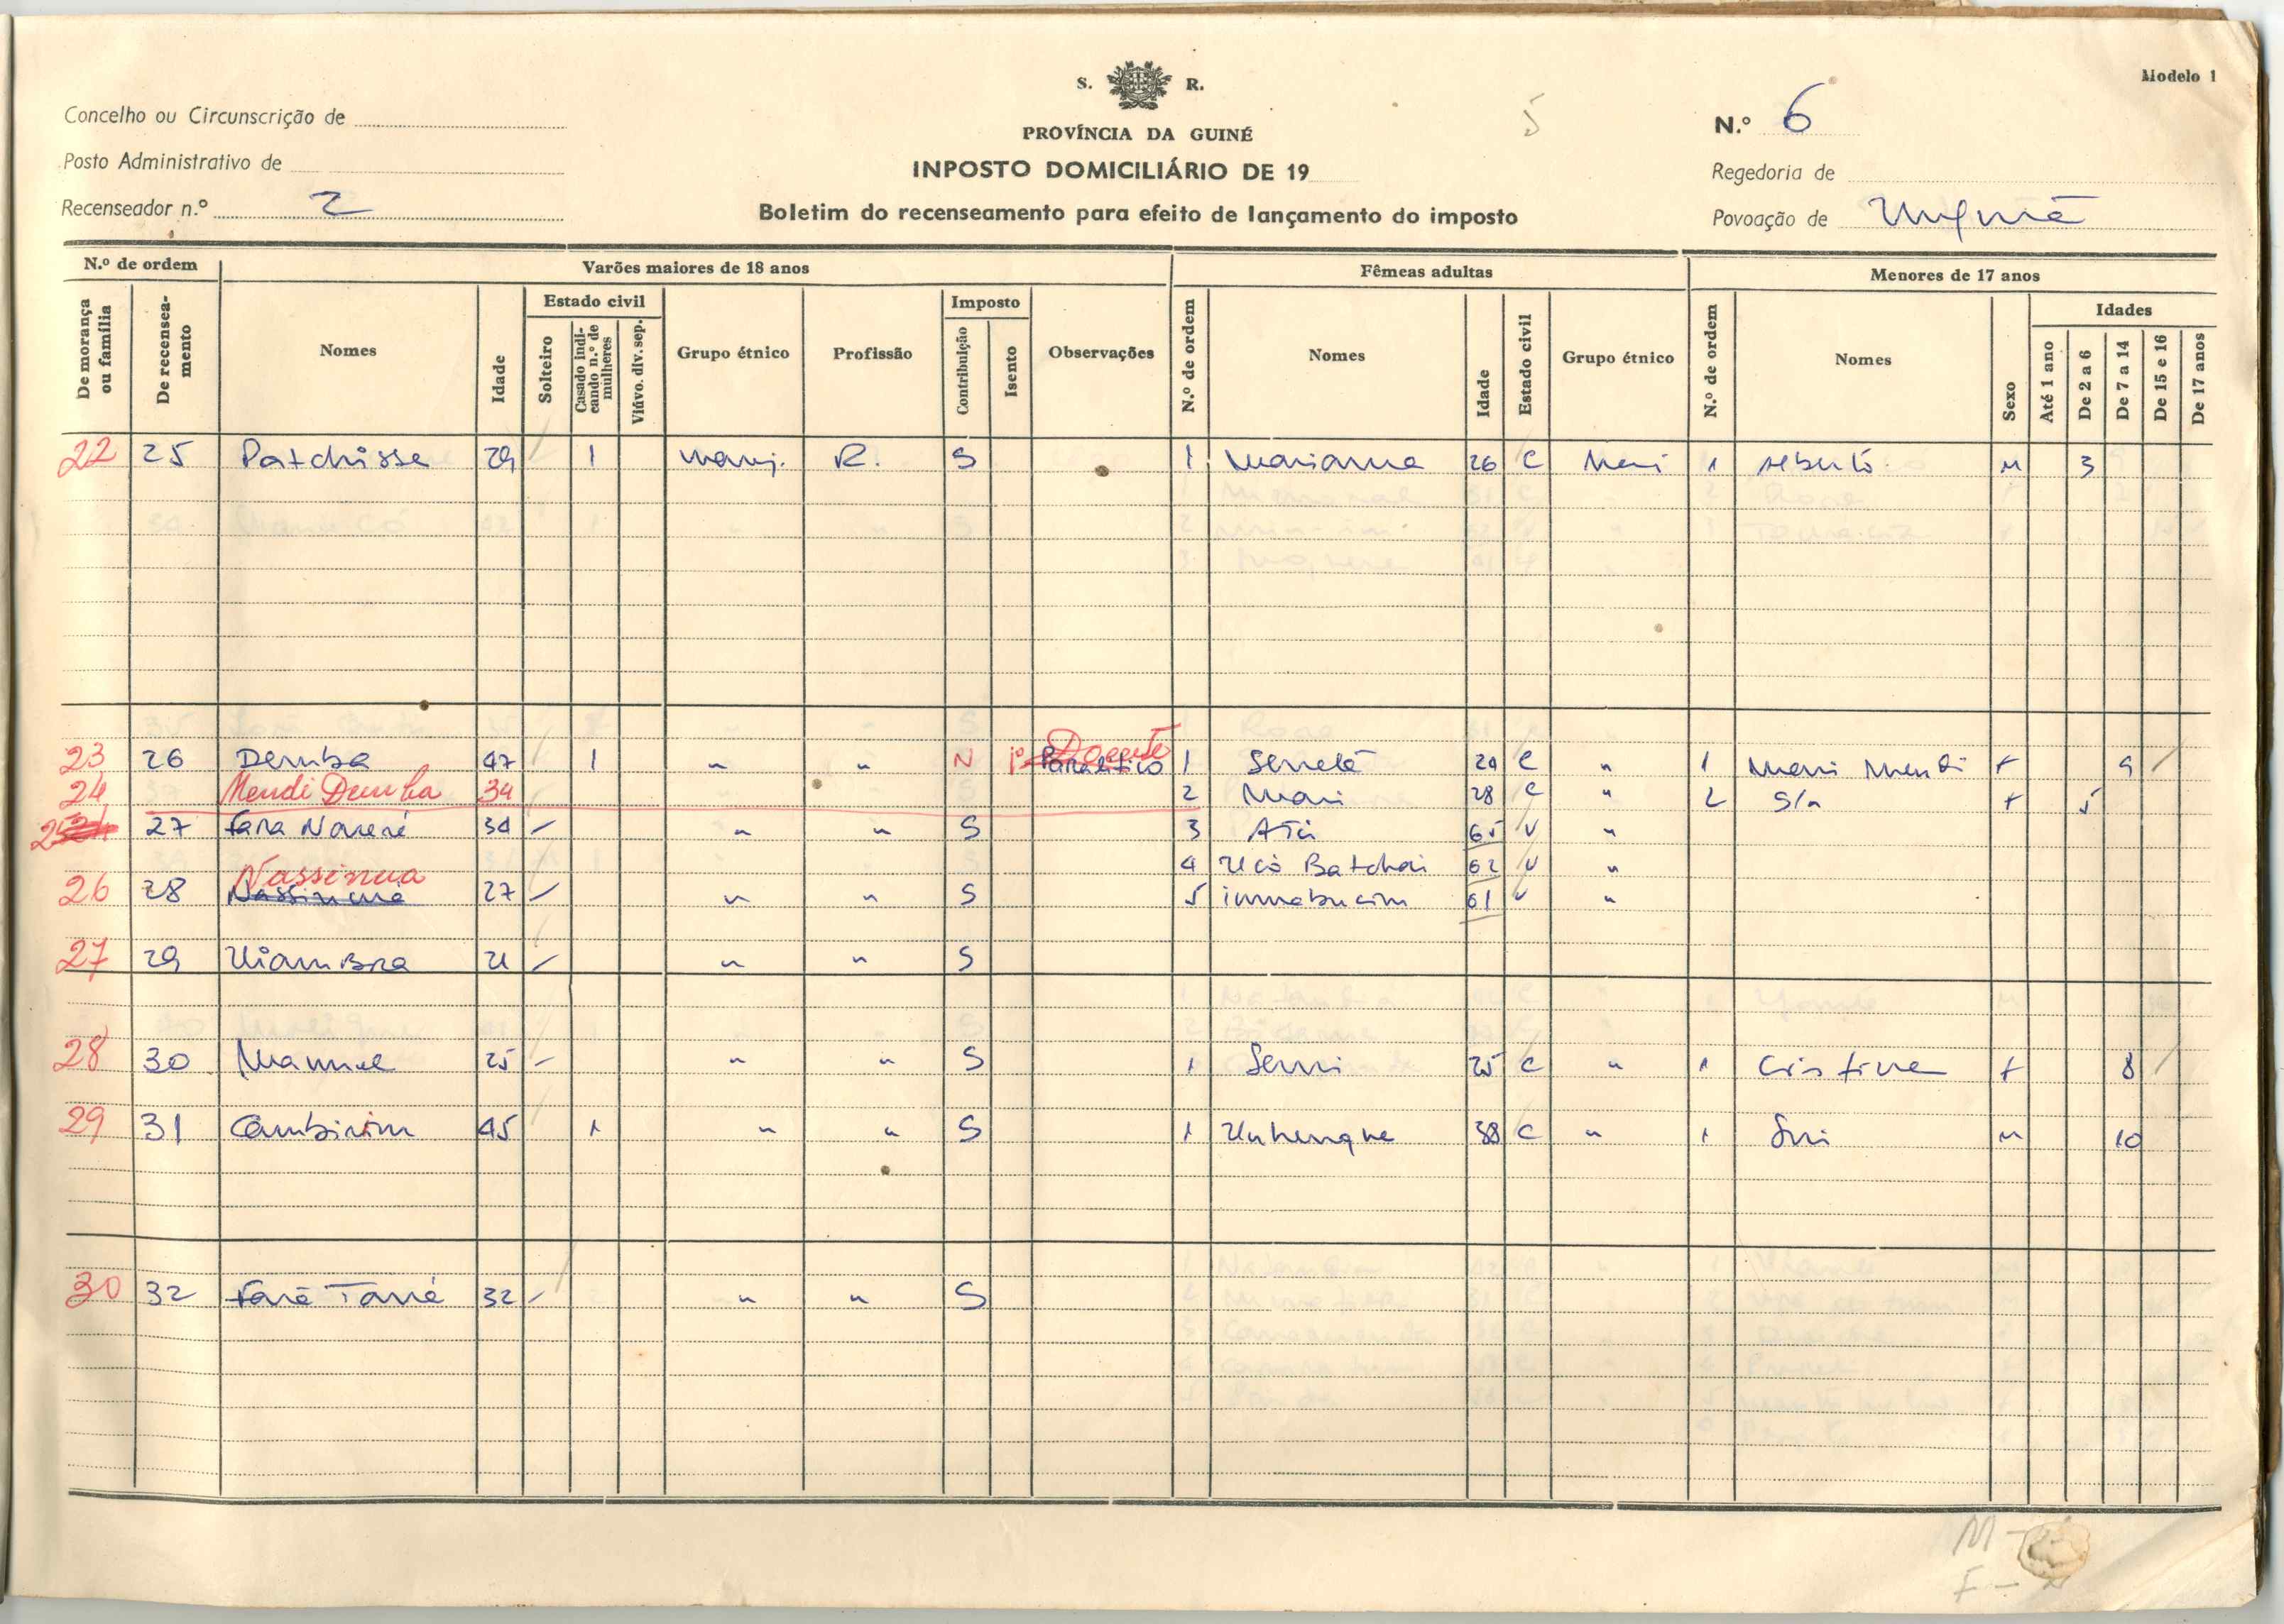 Modelo 1
S. R.
Concelho ou Circunscrição de
5
N.º 6
PROVÍNCIA DA GUINÉ
Posto Administrativo de
INPOSTO DOMICILIÁRIO DE 19
Regedoria de
Recenseador n.º 2
Boletim do recenseamento para efeito de lançamento do imposto
Povoação de
N.º de ordem Varões maiores de 18 anos Fêmeas adultas Menores de 17 anos
De morança ou família De recenseamento Nomes Idade Estado civil Solteiro Casado indicando n.º de mulheres Viúvo. div. sep. Grupo étnico Profissão Imposto Contribuição Isento Observações N.º de ordem Nomes Idade Estado civil Grupo étnico N.º de ordem Nomes Sexo Idades Até 1 ano De 2 a 6 De 7 a 14 De 15 e 16 De 17 anos
22 25 Patchisse 29 1 manj. R. S 1 Marianna 26 C 1 Alberto M 3
Doente
23 26 Demba 47 1 " " N Paralitico 1 29 C " 1 Mendi F 9
24 Mendi Demba 34 2 28 C " 2 S/n F 5
25 27 34 - " " S 3 65 V "
4 Batchai 62 V "
Nassinua
26 28 27 - " " S 5 61 V "
27 29 21 - " " S
28 30 Manuel 25 - " " S 1 25 C " 1 Cristina F 8
29 31 Cambirim 45 1 " " S 1 38 C " 1 M 10
30 32 32 - " " S
M -
F -